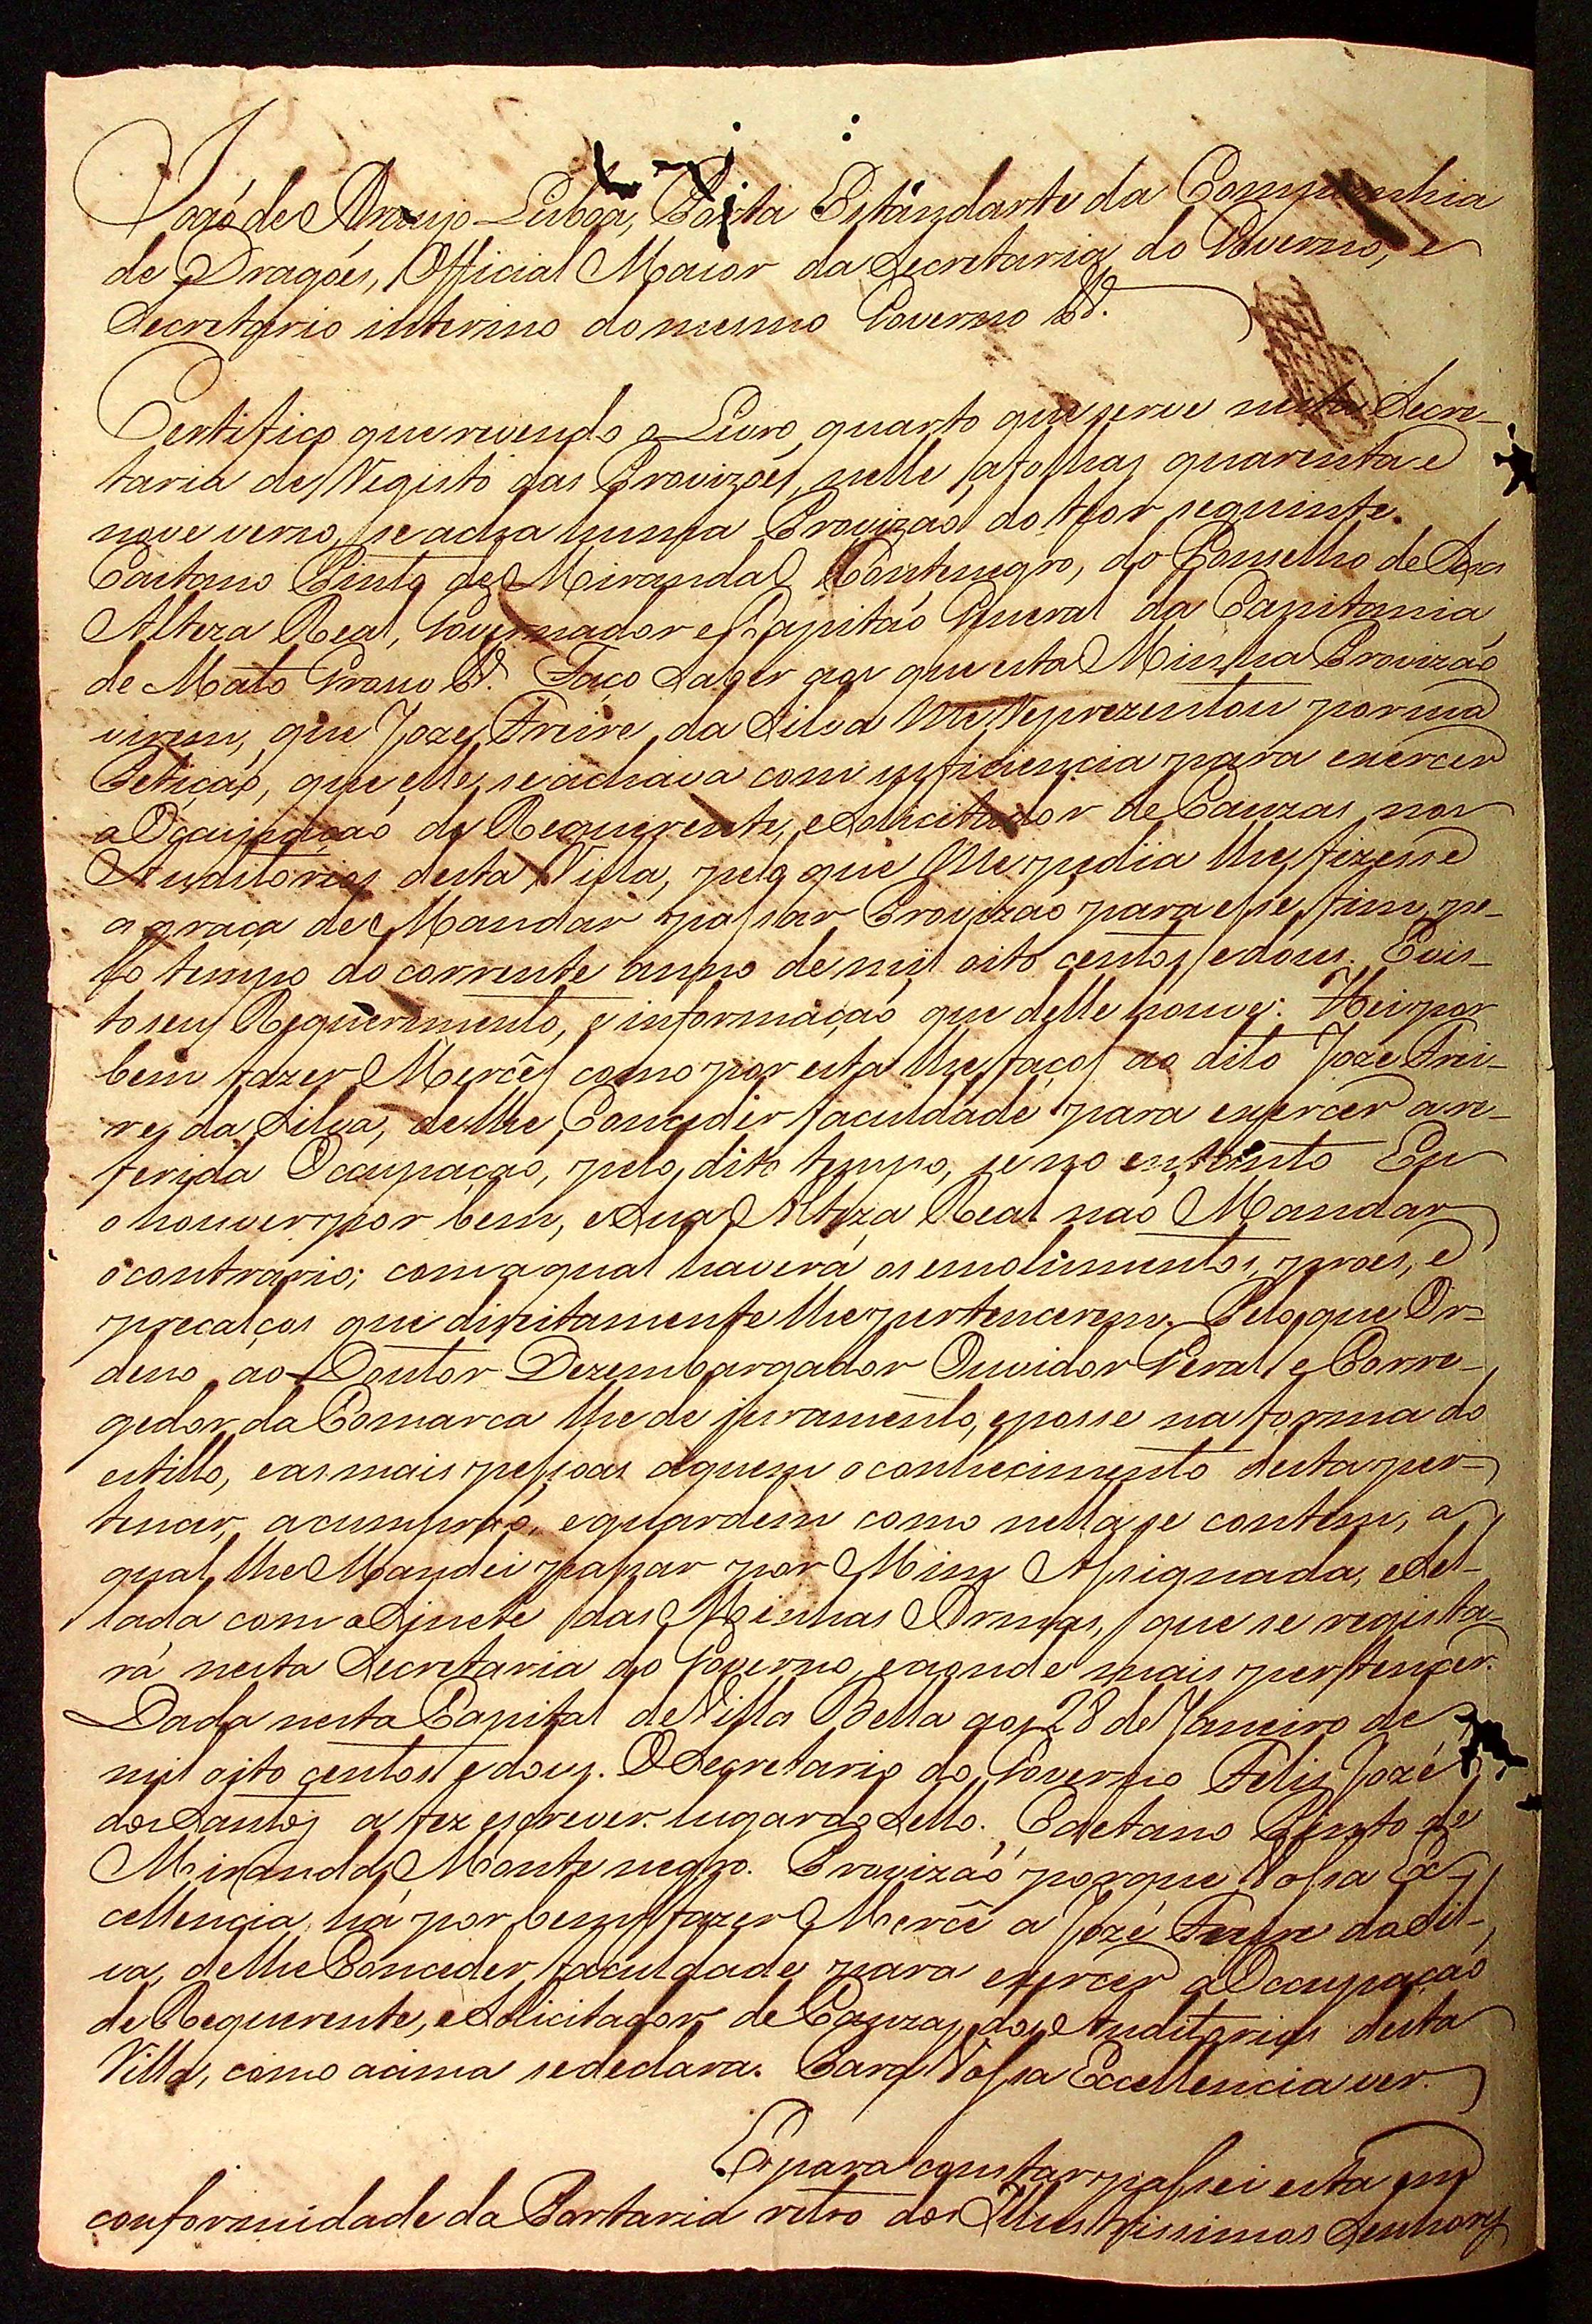 João de Araujo Lisboa, Porta Estandarte da Companhia
de Dragões, Official Maior da Secretaria do Governo, e
Secretario interino do mesmo Governo &ª.
Certifico que revendo o Livro quarto que serve nesta Secre-
taria de Registo das Provizões, nelle a folhas quarenta e
nove verso, se acha huma Provizaõ do theor seguinte.
Caetano Pinto de Miranda Montenegro, do Conselho de Sua
Alteza Real, Governador e Capitaõ General da Capitania
de Mato Grosso &ª. Faço Saber aos que esta Minha Provizaõ
virem, que Joze Freire da Silva Me Reprezentou por sua
Petiçaõ, que elle se achava com sufficiencia para exercer
a Occupaçaõ de Requerente, e Solicitador de Cauzas nos
Auditorios desta Villa, pelo que Me pedia lhe fizesse
a graça de Mandar passar Provizaõ para esse fim, pe-
lo tempo do corrente anno de mil oito centos e dous. E vis-
to seu Requerimento, e informaçaõ que delle houve: Hei por
bem fazer Mercê como por esta lhe faço ao dito Joze Frei-
re da Silva, de lhe Conceder faculdade para exercer a re-
ferida Occupaçaõ, pelo dito tempo, se no entanto Eu
o houver por bem, e Sua Alteza Real naõ Mandar
o contrario; com a qual haverá os emolumentos, proes, e
precalços que direitamente lhe pertencerem. Pelo que Or-
deno ao Doutor Dezembargador Ouvidor Geral e Corre-
gedor da Comarca lhe de juramento, e posse na forma do
estillo, e as mais pessoas a quem o conhecimento desta per-
tencer, a cumpraõ, e guardem como nella se contem, a
qual lhe Mandei passar por Mim Assignada, e Sel-
lada com o Sinete das Minhas Armas, que se regista-
rá nesta Secretaria do Governo, e aonde mais pertencer.
Dada nesta Capital de Villa Bella aos 28 de Janeiro de
mil oito centos e dous. O Secretario do Governo Felis Jozé
dos Santos a fez escrever. lugar do Sello. Caetano Pinto de
Miranda Montenegro. Provizaõ porque Vossa Ex-
cellencia há por bem fazer Mercê a Jozé Freire da Sil-
va, de lhe Conceder faculdade para exercer a Occupaçaõ
de Requerente, e Solicitador de Cauzas dos Auditorios desta
Villa, como acima se declara. Para Vossa Excellencia ver.
E para constar passei esta em
conformidade da Portaria retro dos Illustrissimos Senhores